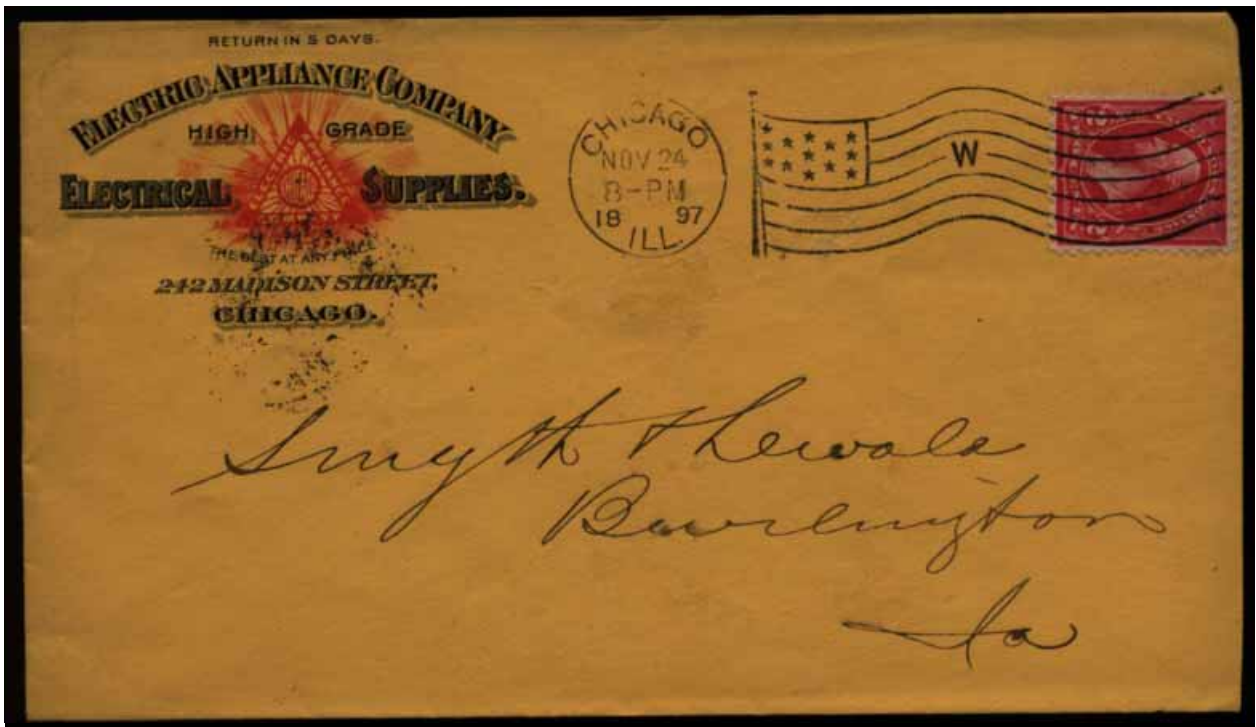 RETURN IN 5 DAYS.
ELECTRIC APPLIANCE COMPANY
HIGH GRADE
ELECTRICAL SUPPLIES.
THE BEST AT ANY PRICE
242 MADISON STREET,
CHICAGO.
CHICAGO
NOV 24
8-PM
18 97
ILL.
W
Smyth &
Burlington
Ia